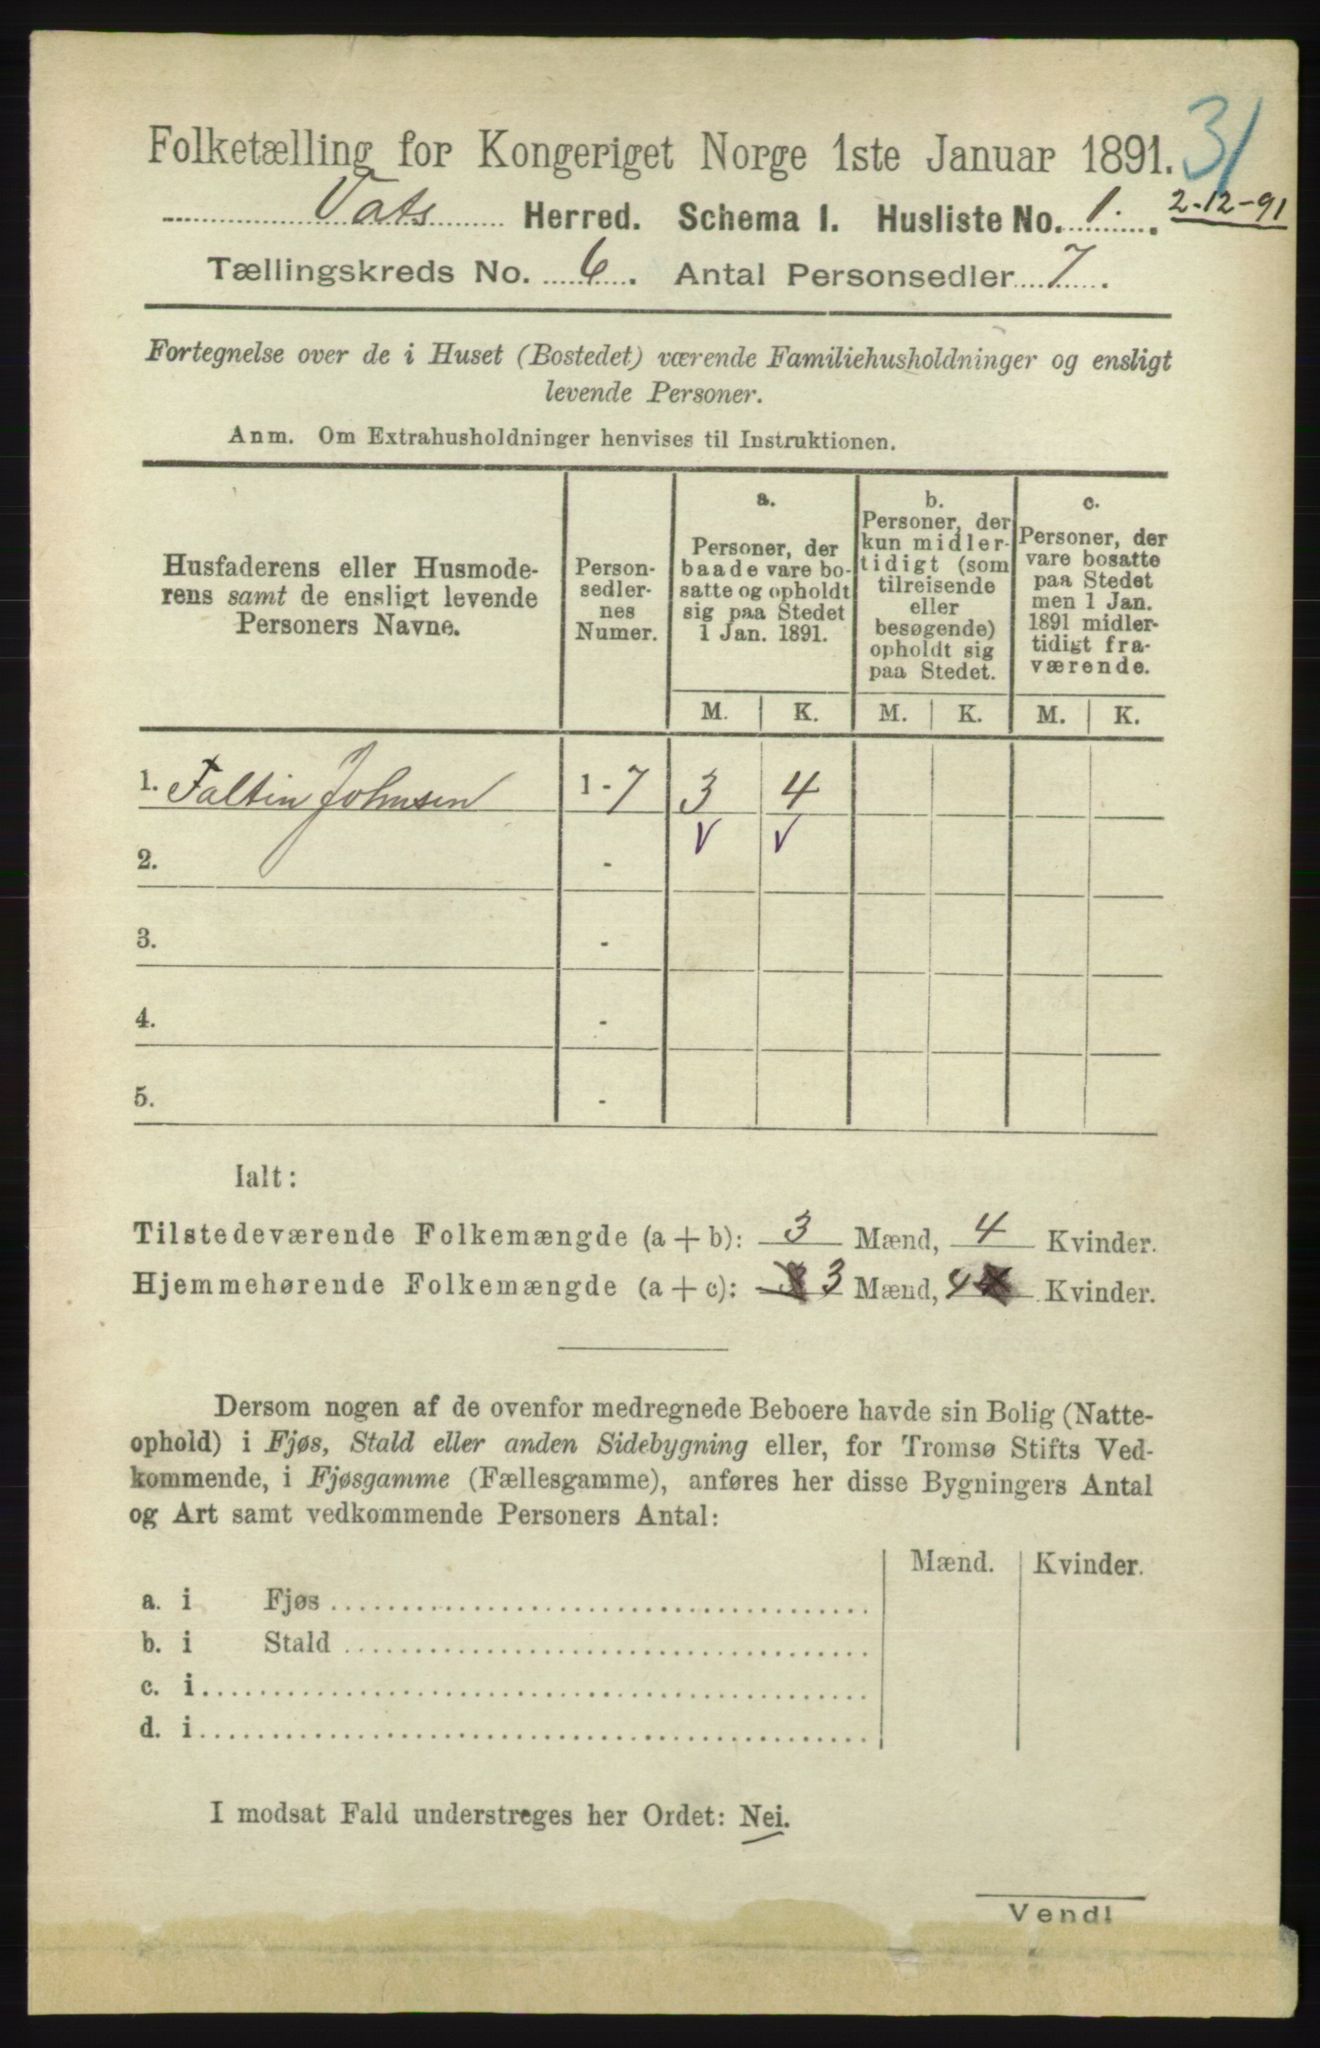 31
Folketælling for Kongeriget Norge 1ste Januar 1891.
Vats Herred. Schema I. Husliste No. 1. 2-12-91
Tællingskreds No. 6. Antal Personsedler 7.
Fortegnelse over de i Huset (Bostedet) værende Familiehusholdninger og ensligt
levende Personer.
Anm. Om Extrahusholdninger henvises til Instruktionen.
Husfaderens eller Husmode-
rens samt de ensligt levende
Personers Navne.
Person-
sedler-
nes
Numer.
a.
Personer, der
baade vare bo-
satte og opholdt
sig paa Stedet
1 Jan. 1891.
b.
Personer, der
kun midler-
tidigt (som
tilreisende
eller
besøgende)
opholdt sig
paa Stedet.
c.
Personer, der
vare bosatte
paa Stedet
men 1 Jan.
1891 midler-
tidigt fra-
værende.
M. K. M. K. M. K.
1. Faltin Johnsen 1 - 7 3 4
2. -
3. -
4. -
5. -
Ialt:
Tilstedeværende Folkemængde (a + b): 3 Mænd, 4 Kvinder.
Hjemmehørende Folkemængde (a + c): 3 Mænd, 4 Kvinder.
Dersom nogen af de ovenfor medregnede Beboere havde sin Bolig (Natte-
ophold) i Fjøs, Stald eller anden Sidebygning eller, for Tromsø Stifts Ved-
kommende, i Fjøsgamme (Fællesgamme), anføres her disse Bygningers Antal
og Art samt vedkommende Personers Antal:
Mænd. Kvinder.
a. i Fjøs
b. i Stald
c. i
d. i
I modsat Fald understreges her Ordet: Nei.
Vend!